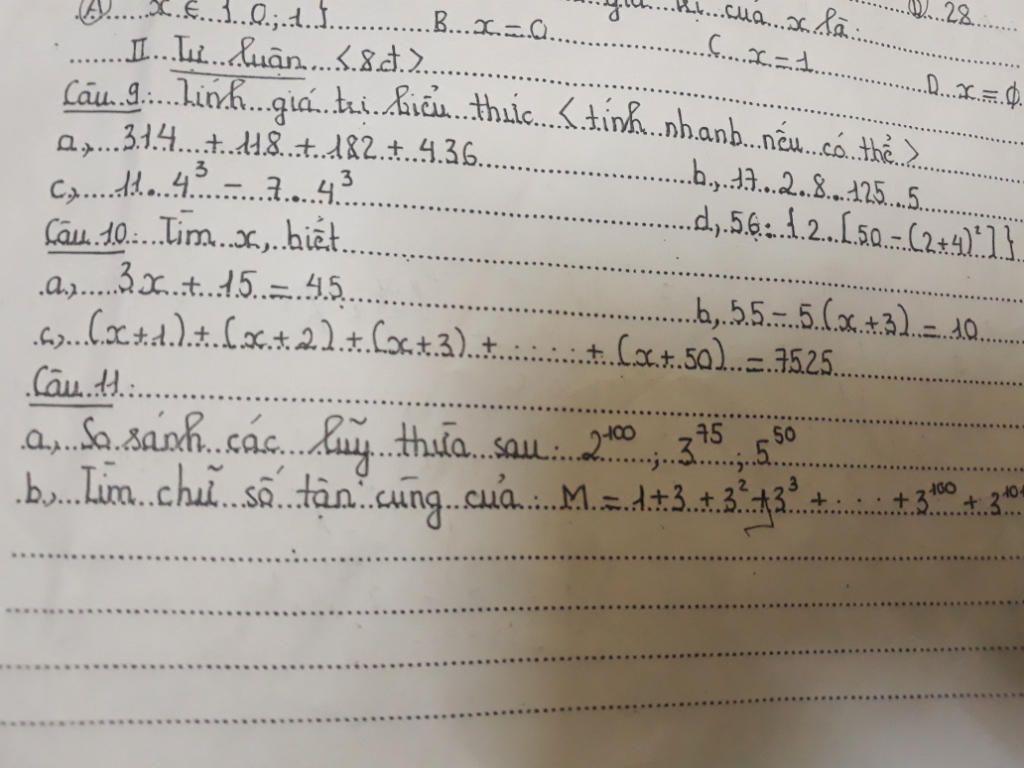 (A) x ∈ { 0; 1 } B. x = 0 C. x = 1 D. x = ∅
trị của x là: D. 28
II. Tự luận <8đ>
Câu 9: Tính giá trị biểu thức <tính nhanh nếu có thể>
a, 314 + 118 + 182 + 436 b, 17.2.8.125.5
c, 11.4³ - 7.4³ d, 56:{2.[50-(2+4)²]}
Câu 10: Tìm x, biết
a, 3x + 15 = 45 b, 55 - 5.(x+3) = 10
c, (x+1) + (x+2) + (x+3) + ..... + (x+50) = 7525
Câu 11:
a, So sánh các luỹ thừa sau: 2¹⁰⁰; 3⁷⁵; 5⁵⁰
b, Tìm chữ số tận cùng của: M = 1+3+3²+3³ + .... + 3¹⁰⁰ + 3¹⁰¹